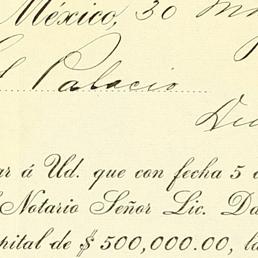 México, 30
Palacio
ar á Ud. que con fecha 5
Notario Señor Lic. Da
pital de $ 500,000.00, la